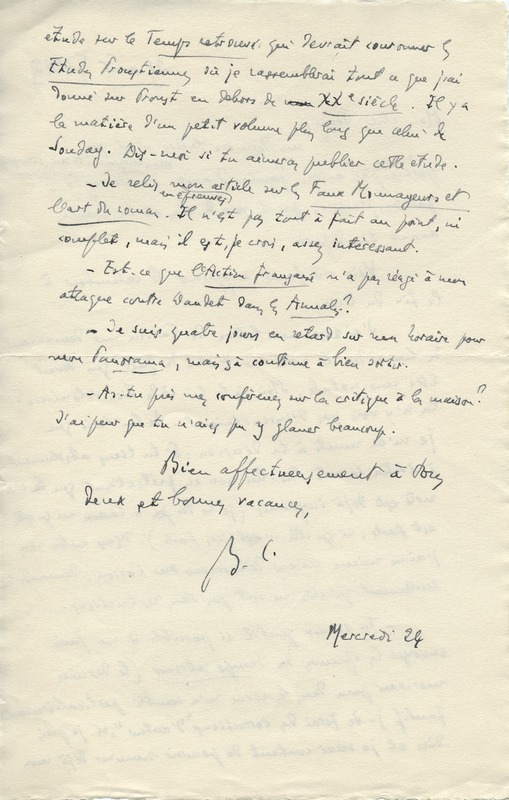 étude sur le Temps retrouvé qui devrait couronner les
Etudes Proustiennes où je rassemblerai tout ce que j'ai
donné sur Proust en dehors de XXe siècle. Il y a
la matière d'un petit volume plus long que celui de
Souday. Dis-moi si tu aimerais publier cette étude.
- Je relis mon article sur les Faux Monnayeurs et
(en épreuves)
l'art du roman. Il n'est pas tout à fait au point, ni
complet, mais il est, je crois, assez intéressant.
- Est-ce que l'Action française n'a pas réagi à mon
attaque contre Daudet dans les Annales?
- Je suis quatre jours en retard sur mon horaire pour
mon Panorama, mais çà continue à bien sortir.
- As-tu pris mes conférences sur la critique à la maison?
J'ai peur que tu n'aies pu y glaner beaucoup.
Bien affectueusement à vous
deux et bonnes vacances,
B. C.
Mercredi 24